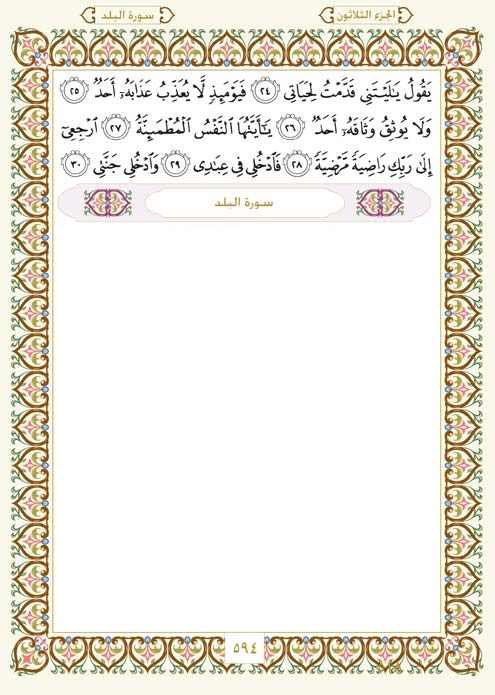 الجزء الثلاثون
سورة البلد
يَقُولُ يَٰلَيۡتَنِي قَدَّمۡتُ لِحَيَاتِي ٢٤ فَيَوۡمَئِذٖ لَّا يُعَذِّبُ عَذَابَهُۥٓ أَحَدٞ ٢٥
وَلَا يُوثِقُ وَثَاقَهُۥٓ أَحَدٞ ٢٦ يَٰٓأَيَّتُهَا ٱلنَّفۡسُ ٱلۡمُطۡمَئِنَّةُ ٢٧ ٱرۡجِعِيٓ
إِلَىٰ رَبِّكِ رَاضِيَةٗ مَّرۡضِيَّةٗ ٢٨ فَٱدۡخُلِي فِي عِبَٰدِي ٢٩ وَٱدۡخُلِي جَنَّتِي ٣٠
سورة البلد
٥٩٤